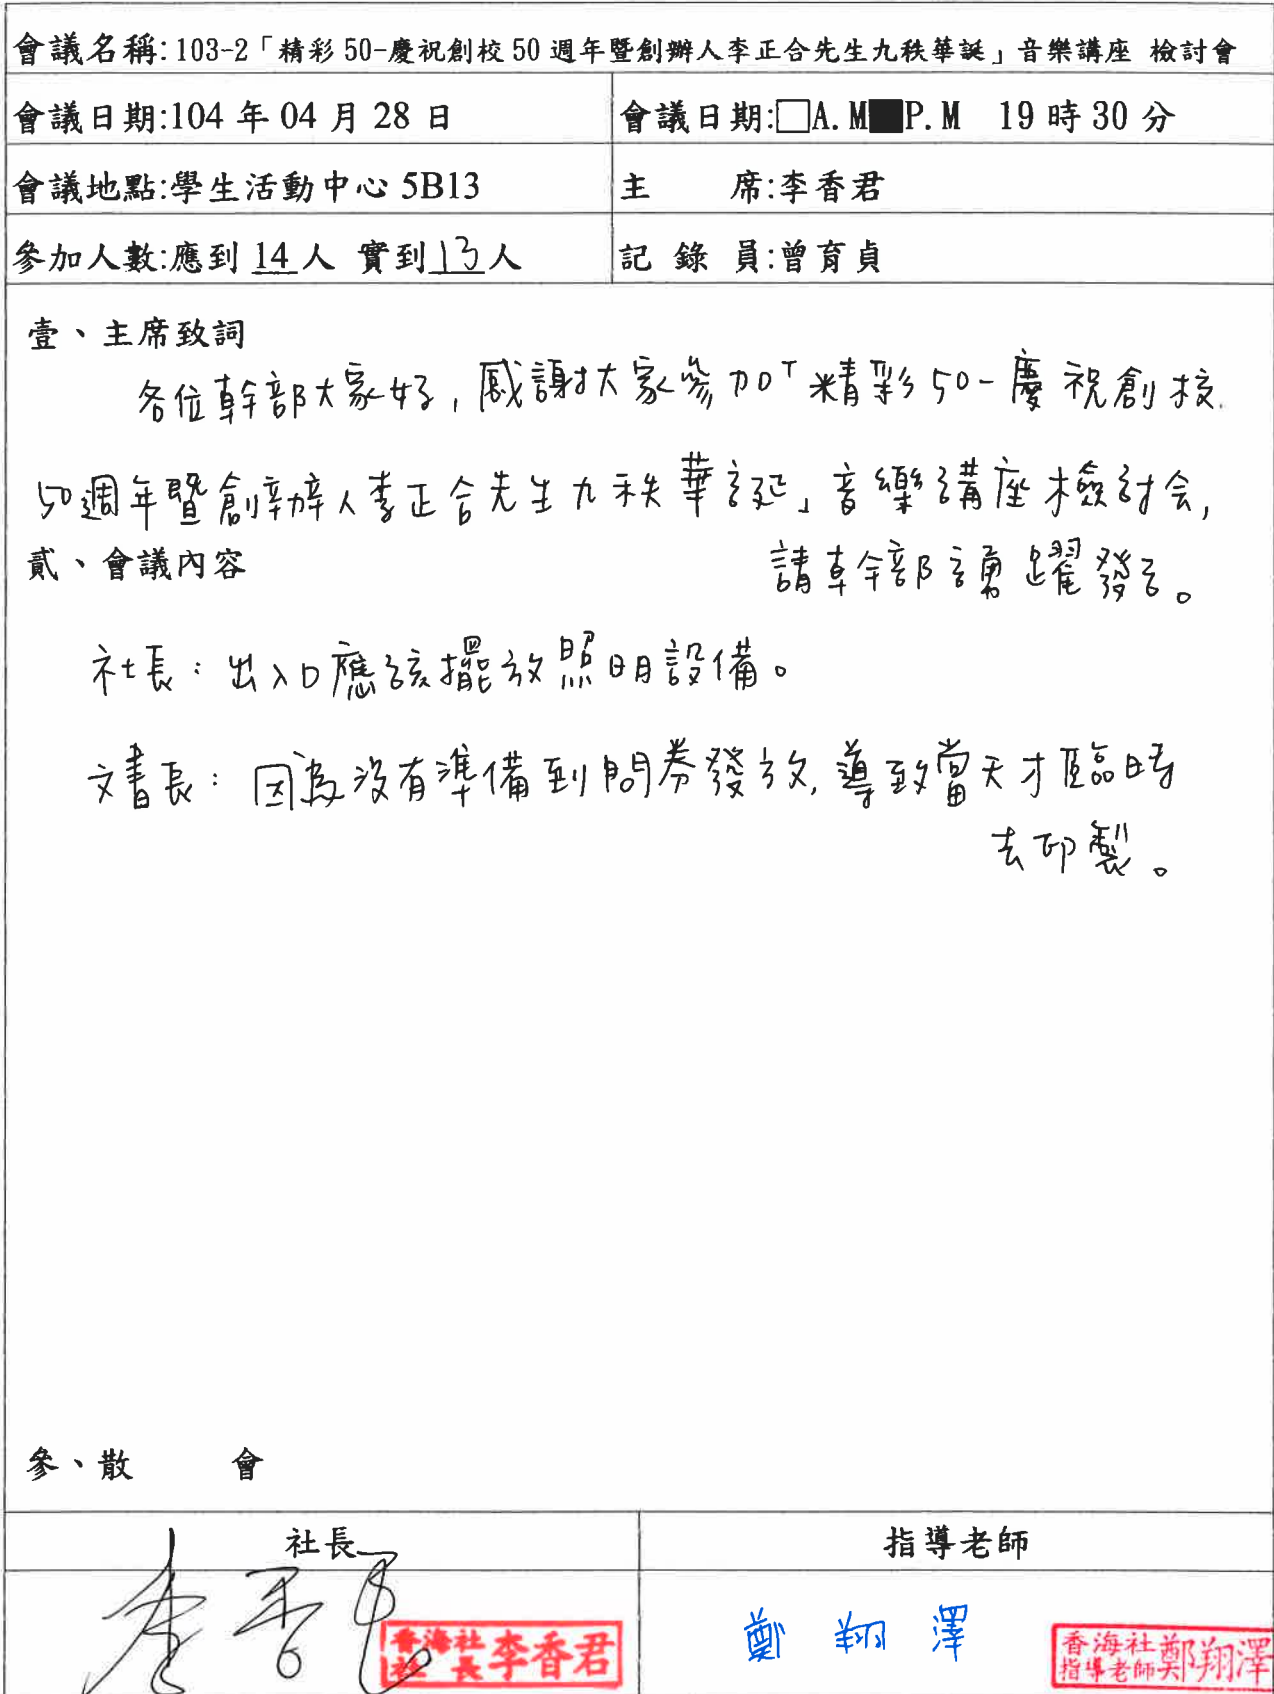 會議名稱:103-2「精彩50-慶祝創校50週年暨創辦人李正合先生九秩華誕」音樂講座 檢討會
會議日期:104年04月28日 會議日期:□A.M■P.M 19時30分
會議地點:學生活動中心5B13 主 席:李香君
參加人數:應到 14 人 實到 13 人 記 錄 員:曾育貞
壹、主席致詞
各位幹部大家好,感謝大家參加「精彩50-慶祝創校
50週年暨創辦人李正合先生九秩華誕」音樂講座檢討会,
請幹部踴躍發言。
貳、會議內容
社長:出入口應該擺放照明設備。
文書長:因為沒有準備到問券發放,導致當天才臨時
去印製。
參、散 會
社長 指導老師
李香君 鄭翔澤
香海社 社長 李香君
香海社 指導老師 鄭翔澤